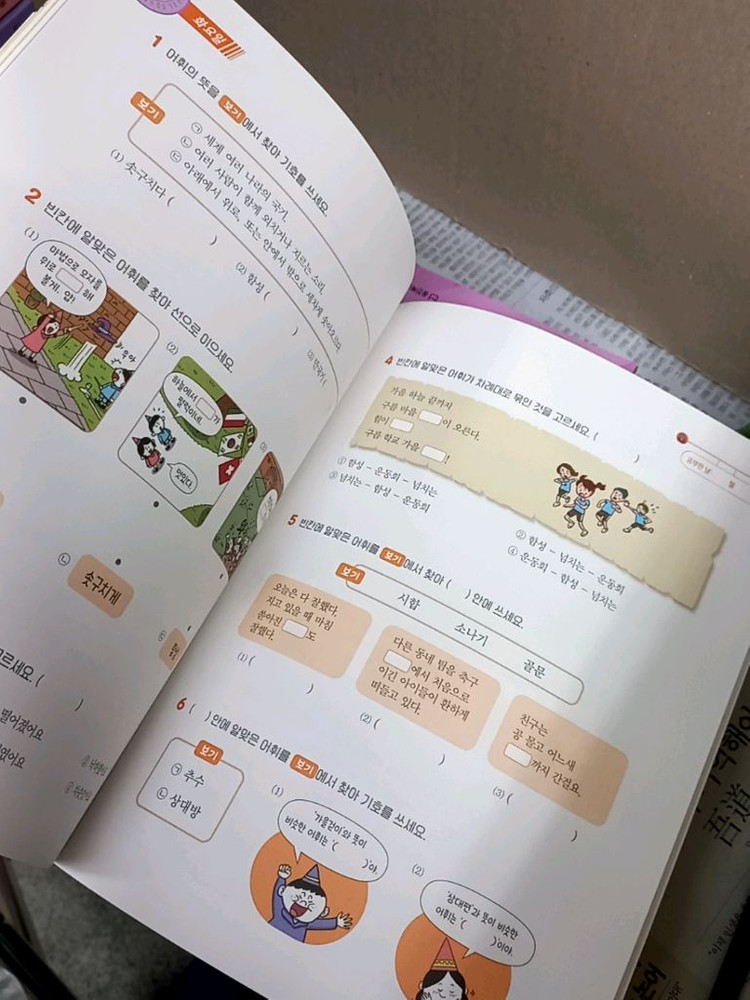 화요일
1 어휘의 뜻을 보기에서 찾아 기호를 쓰세요.
보기
㉠ 세계 여러 나라의 국기.
㉡ 여러 사람이 함께 외치거나 지르는 소리.
㉢ 아래에서 위로, 또는 안에서 밖으로 세차게 솟아오르다.
(1) 솟구치다 ( )
(2) 함성 ( )
2 빈칸에 알맞은 어휘를 찾아 선으로 이으세요.
(1)
마법으로 모자를
위로 해
볼게. 얍!
우아
(2)
하늘에서 가
펄럭이네.
멋있다.
㉡
솟구치게
고르세요. ( )
4 빈칸에 알맞은 어휘가 차례대로 묶인 것을 고르세요. ( )
가을 하늘 끝까지
구름 마을 이 오른다.
힘이
구름 학교 가을 !
① 함성 – 운동회 – 넘치는
② 함성 – 넘치는 – 운동회
③ 넘치는 – 함성 – 운동회
④ 운동회 – 함성 – 넘치는
공부한 날
월
5 빈칸에 알맞은 어휘를 보기에서 찾아 ( ) 안에 쓰세요.
보기
시합 소나기 골문
오늘은 다 잘했다.
지고 있을 때 마침
쏟아진 도
잘했다.
(1) ( )
다른 동네 팀을 축구
에서 처음으로
이긴 아이들이 환하게
떠들고 있다.
(2) ( )
친구는
공 몰고 어느새
까지 간걸요.
(3) ( )
6 ( ) 안에 알맞은 어휘를 보기에서 찾아 기호를 쓰세요.
보기
㉠ 추수
㉡ 상대방
(1)
'가을걷이'와 뜻이
비슷한 어휘는 '( )'야.
(2)
'상대편'과 뜻이 비슷한
어휘는 '( )'이야.